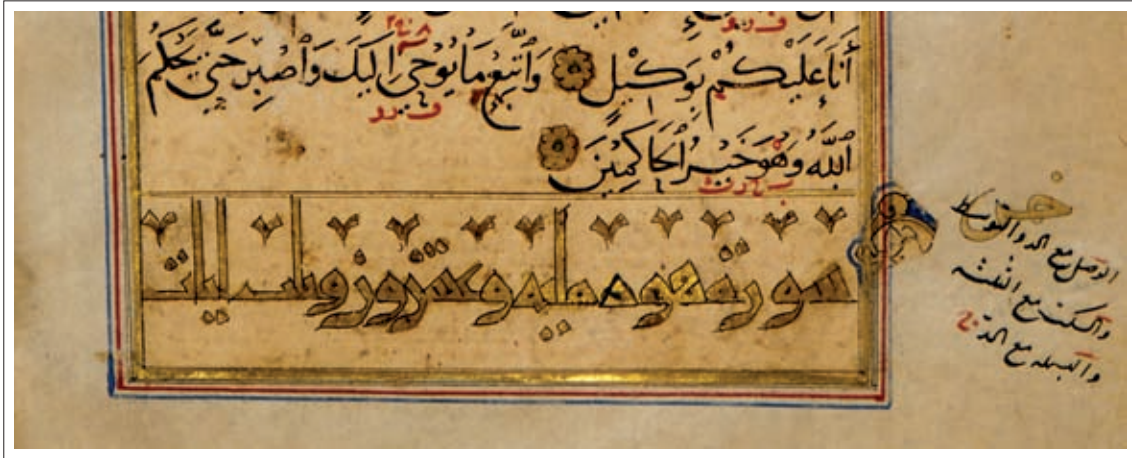 أَنَا عَلَيْكُمْ بِوَكِيْلٍ وَٱتَّبِعْ مَا يُوْحَىٰ اِلَيْكَ وَٱصْبِرْ حَتّٰى يَحْكُمَ
ٱللّٰهُ وَهُوَ خَيْرُ ٱلْحَاكِمِيْنَ
سورة هود مايه وعشرون وثلث ايات
الوصل مع المد والتوسط
والسكت مع الثلثه
والبسمله مع المد